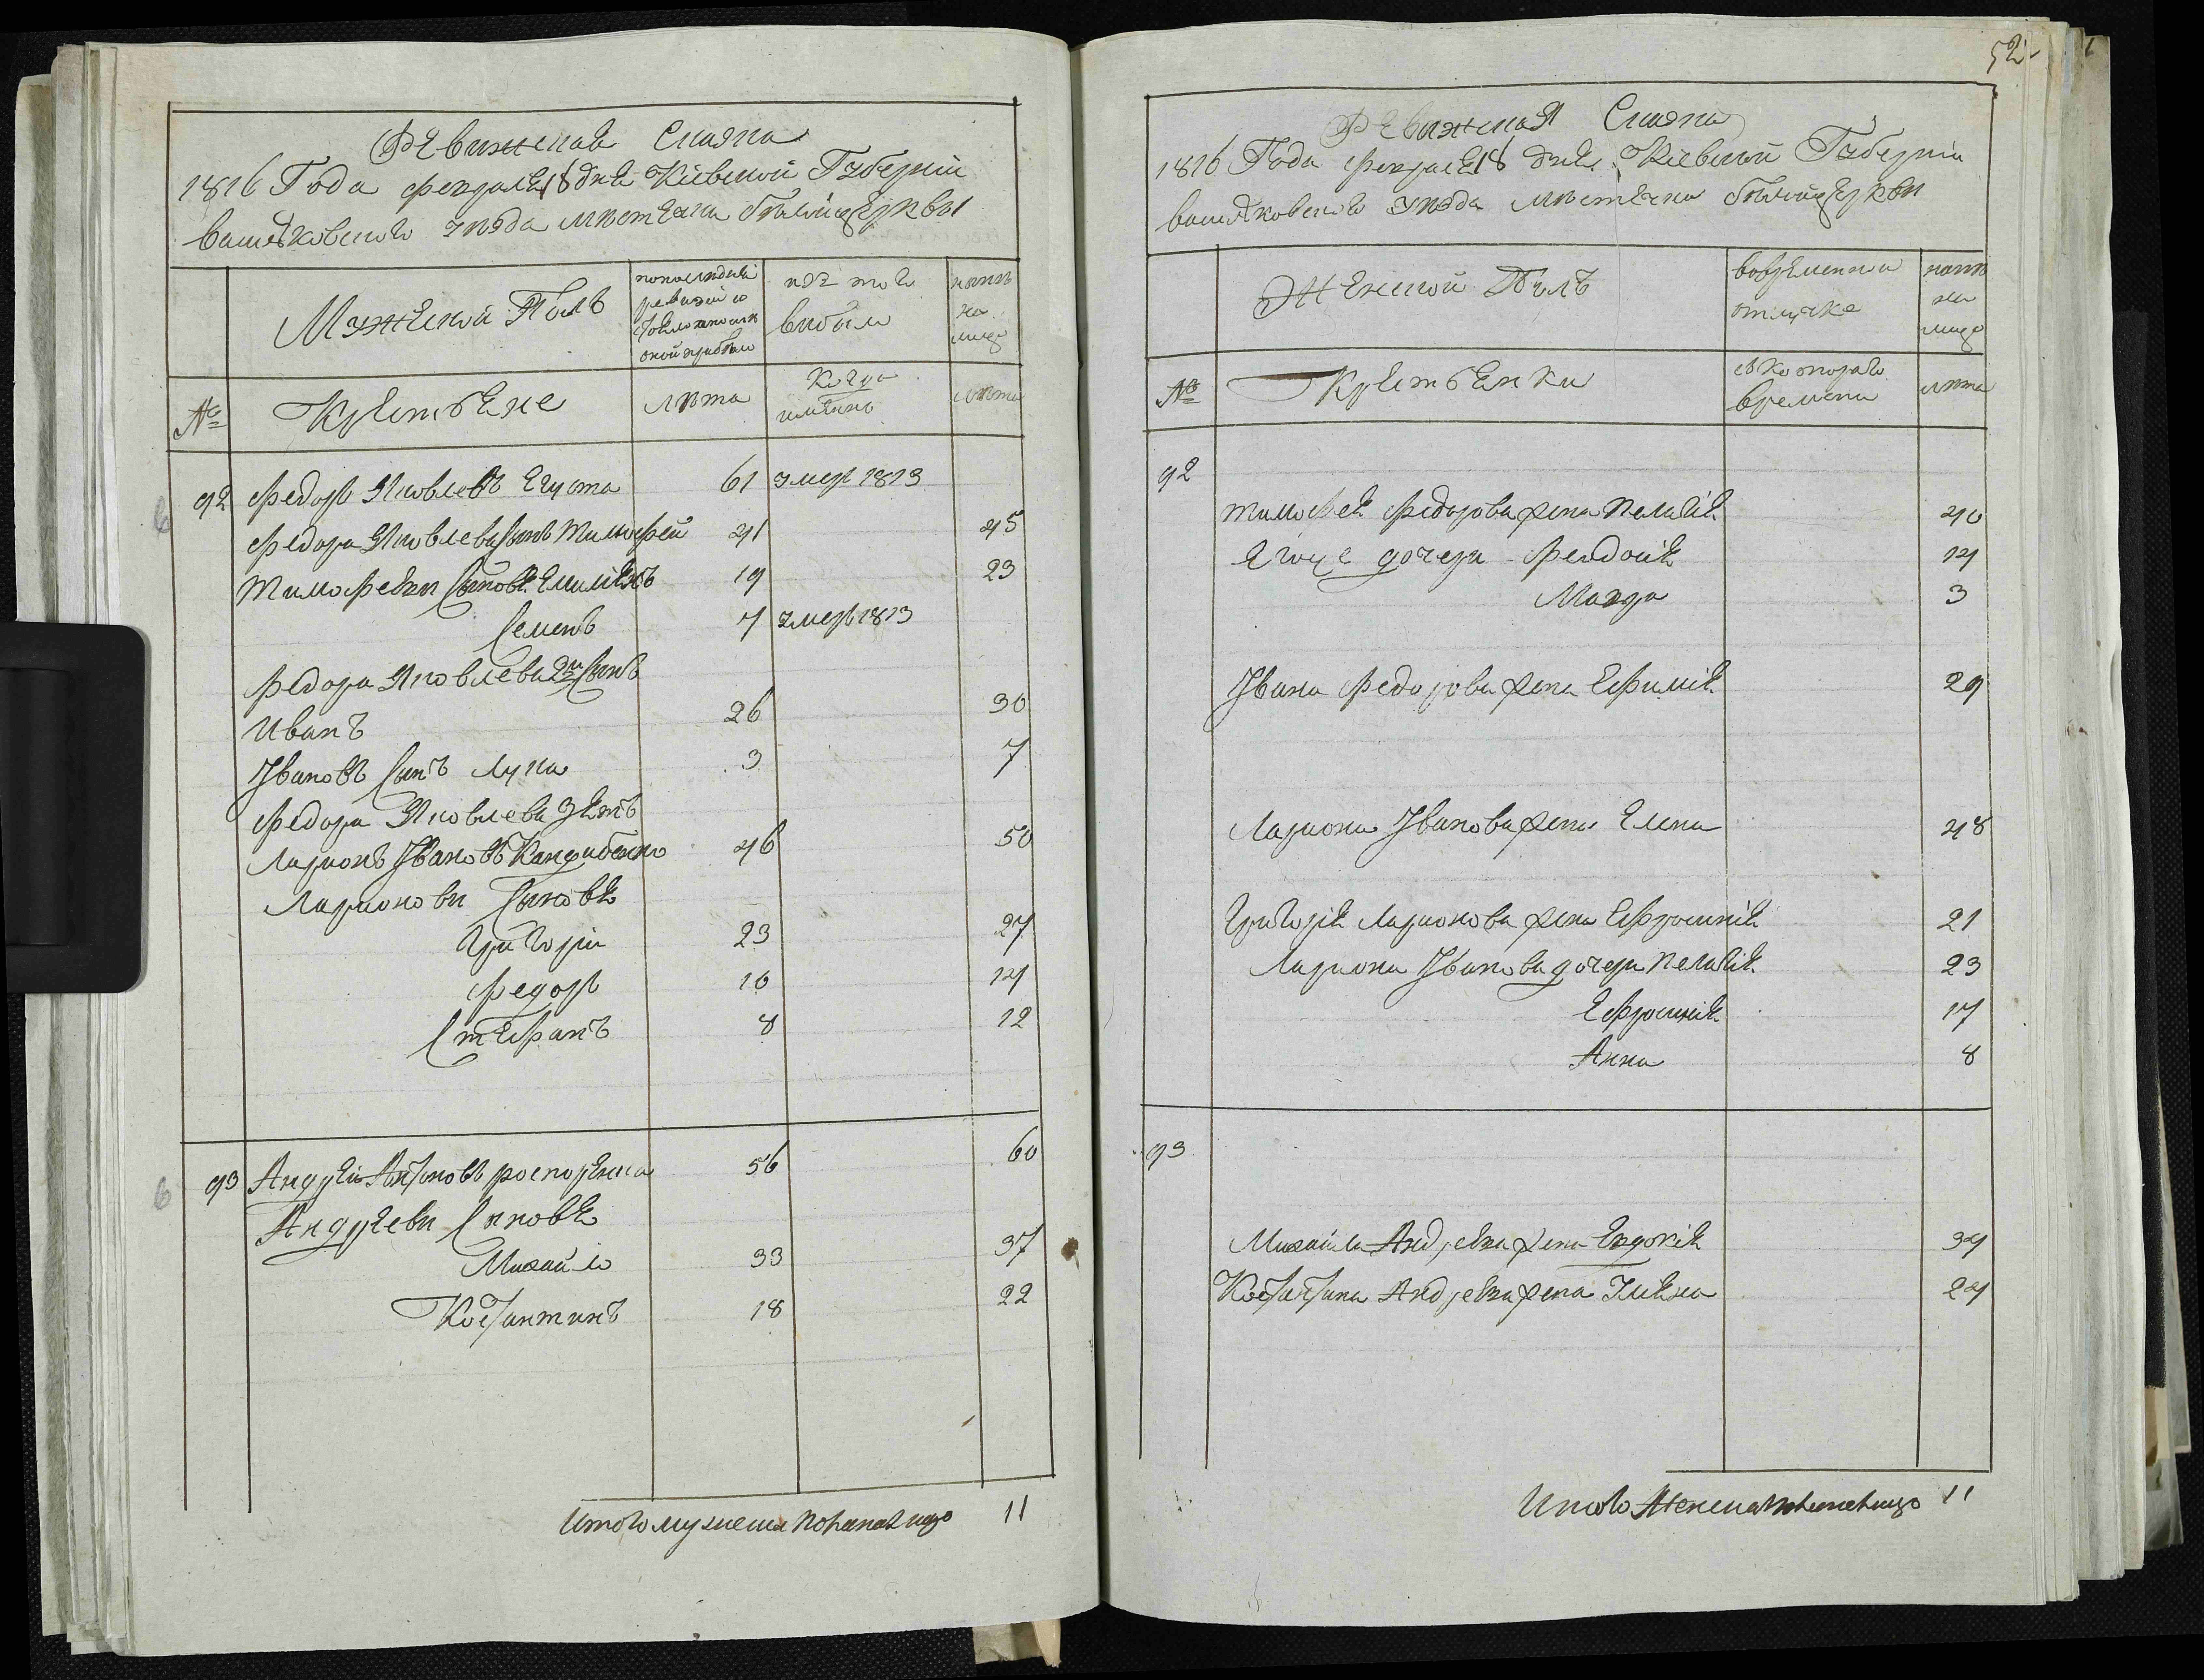 Ревижская Сказка
1816 Года февраля 18 дня Кіевской Губерніи
васильковского уезда местечка белойцеркви
Мужеской Полъ
по последней ревизіи
изъ того выбыло
ныне на лицо
№ Крестьяне
лета
когда именно
лета
92 Федоръ Яковлевъ 61 умер 1813
Федора Яковлева сынъ Тимофей 41 45
Тимофеевы сыновя Емиліянъ 19 23
Семенъ 7 умеръ 1813
Федора Яковлева 2й сынъ
Иванъ 26 30
Івановъ сынъ Лука 3 7
Федора Яковлева зять
Ларионъ Івановъ 46 50
Ларионовы сыновя
Григорій 23 27
Федоръ 10 14
Стефанъ 8 12
93 Андрей Антоновъ 56 60
Андреевы сыновя
Михайло 33 37
Костантинъ 18 22
Итого мужеска пола налицо 11
52
Ревижская Сказка
1816 Года февраля 18 дня Кіевской Губерніи
васильковского уезда местечка белойцеркви
Женской Полъ
вовременной отлучке
ныне на лицо
№ Крестьянки
с которого времени
лета
92
Тимофея Федорова жена Пелагія 40
Егоже дочери Феодосія 14
Марья 3
Івана Федорова жена Ефимія 29
Лариона Іванова жена Елена 48
Григорія Ларионова жена Ефросинія 21
Лариона Іванова дочери Пелагія 23
Ефросинія 17
Анна 8
93
Михаила Андреева жена Евдокія 34
Костантина Андреева жена Уляна 24
Итого Женска пола налицо 11